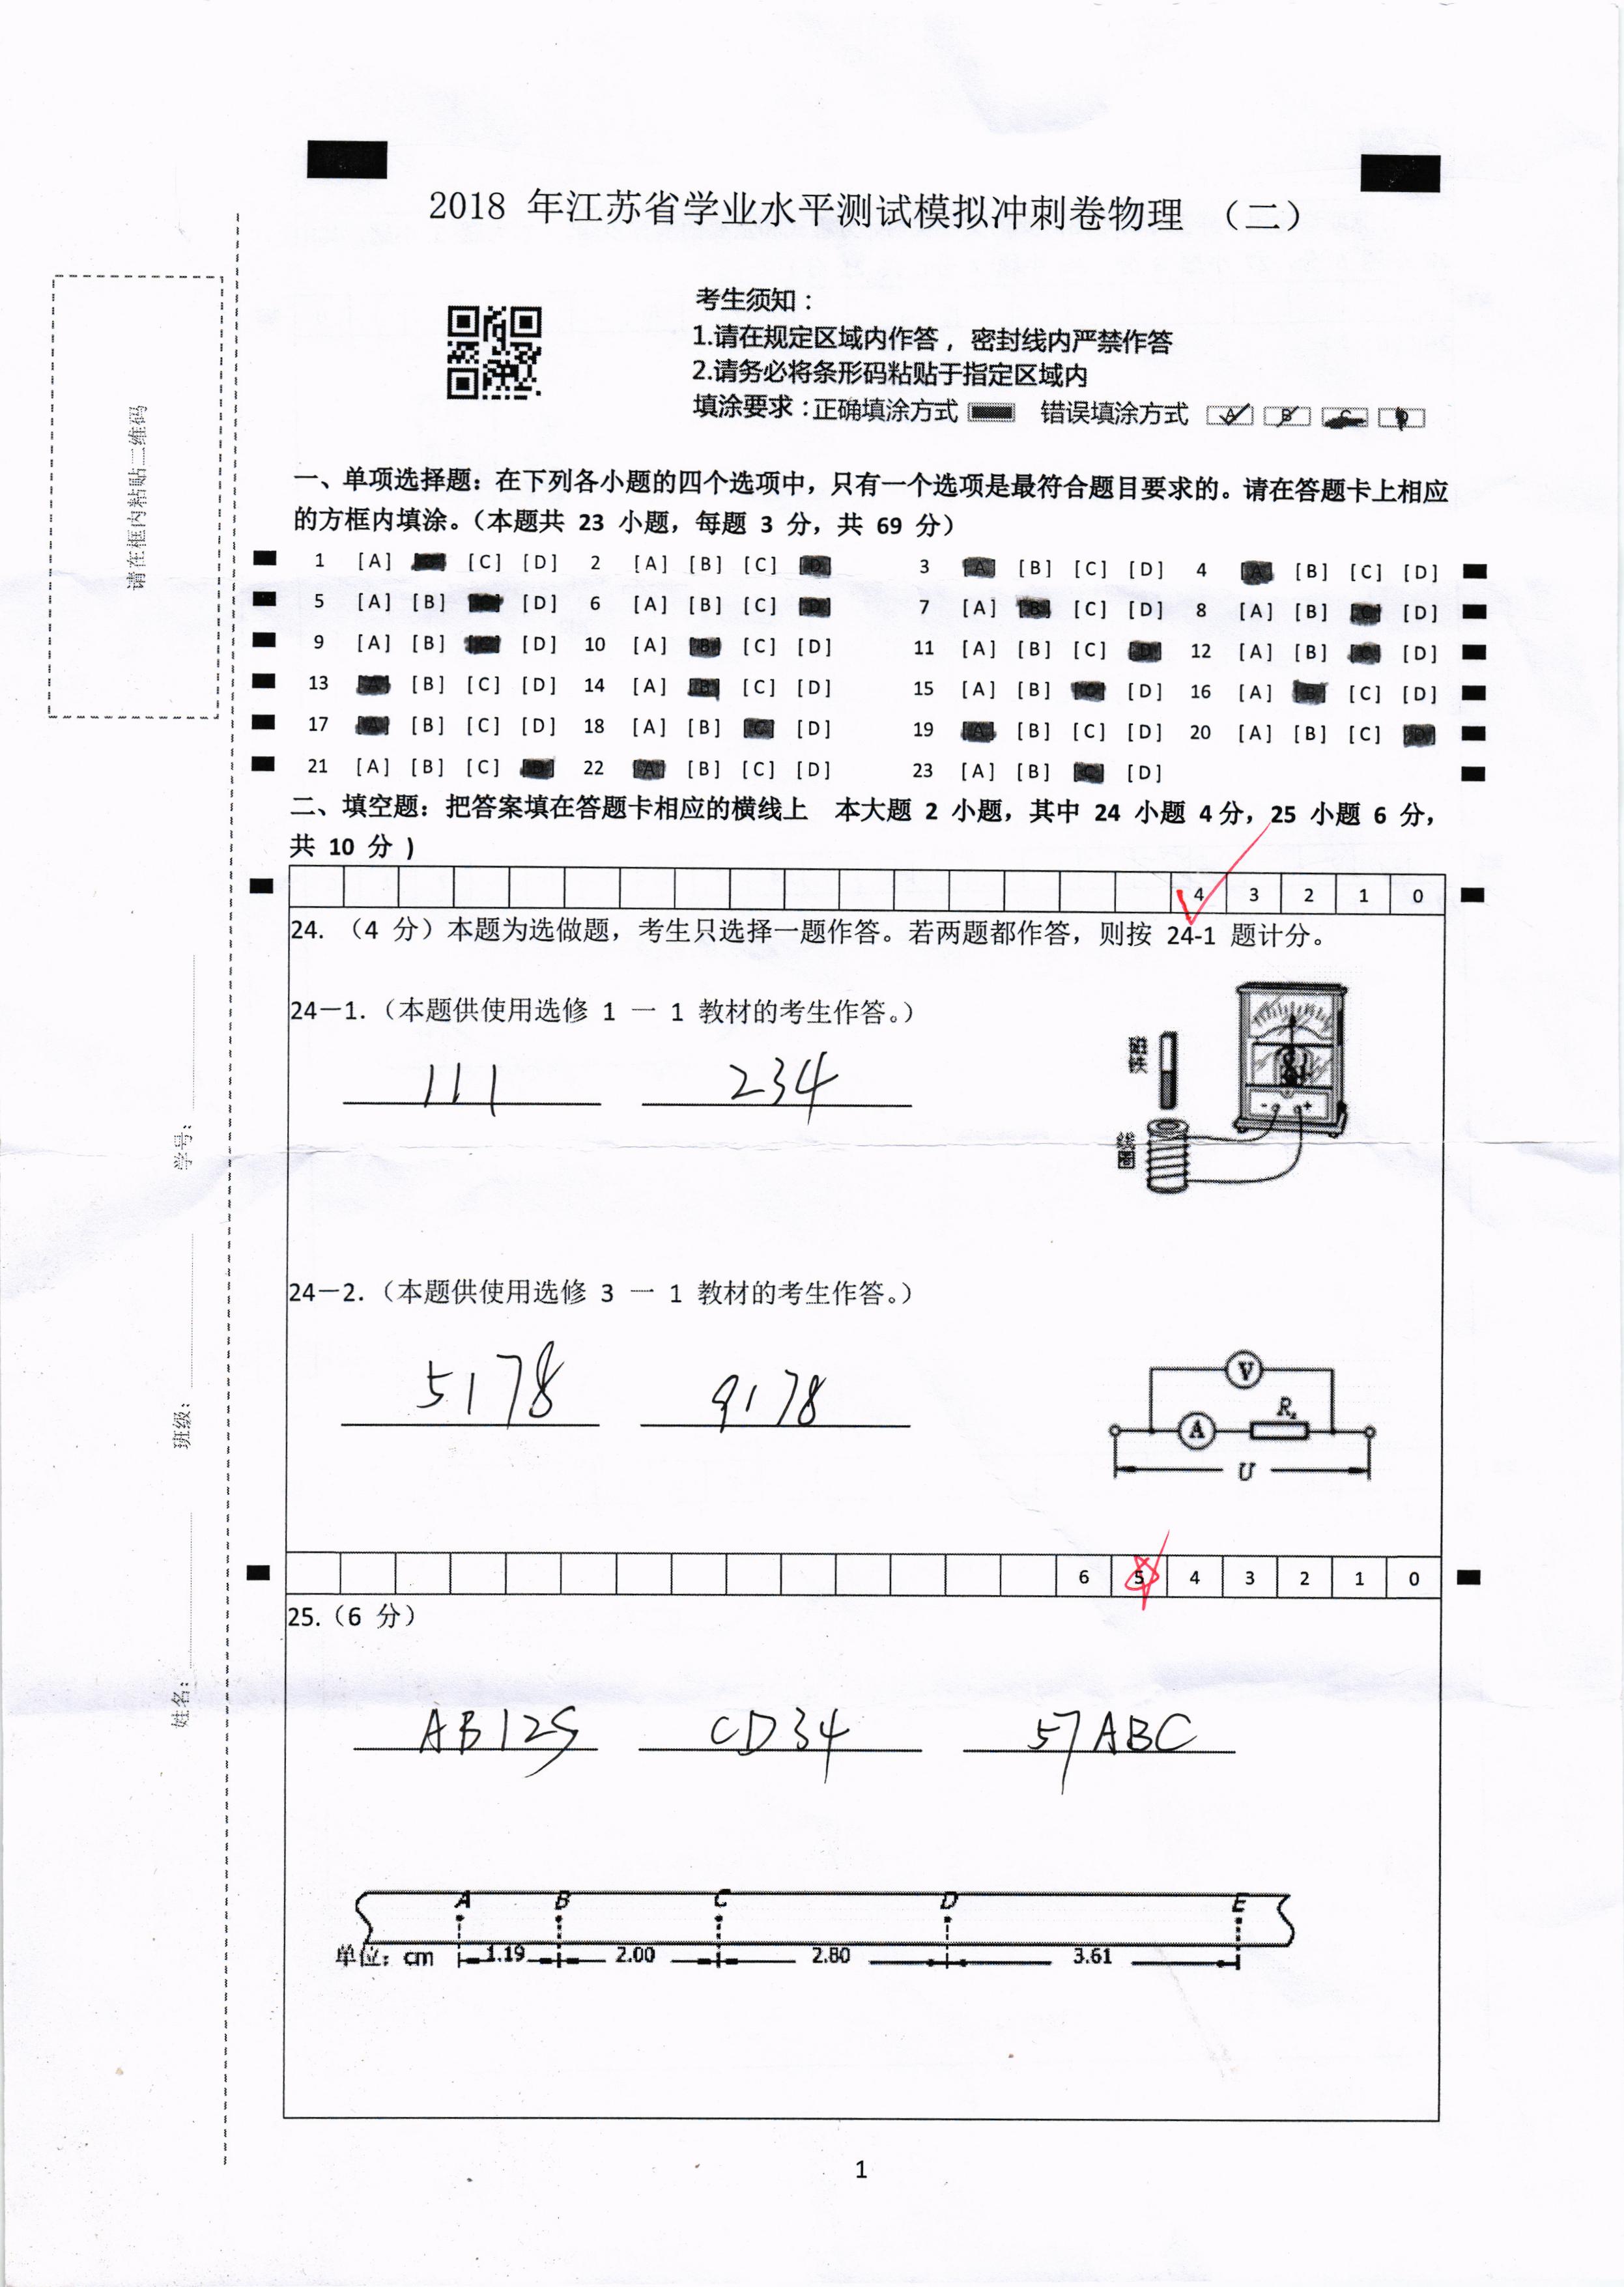 2018 年江苏省学业水平测试模拟冲刺卷物理 （二）
考生须知：
1.请在规定区域内作答，密封线内严禁作答
2.请务必将条形码粘贴于指定区域内
填涂要求：正确填涂方式 错误填涂方式 A B C D
请在框内粘贴二维码
一、单项选择题：在下列各小题的四个选项中，只有一个选项是最符合题目要求的。请在答题卡上相应
的方框内填涂。（本题共 23 小题，每题 3 分，共 69 分）
1 [A] [B] [C] [D] 2 [A] [B] [C] [D] 3 [A] [B] [C] [D] 4 [A] [B] [C] [D]
5 [A] [B] [C] [D] 6 [A] [B] [C] [D] 7 [A] [B] [C] [D] 8 [A] [B] [C] [D]
9 [A] [B] [C] [D] 10 [A] [B] [C] [D] 11 [A] [B] [C] [D] 12 [A] [B] [C] [D]
13 [A] [B] [C] [D] 14 [A] [B] [C] [D] 15 [A] [B] [C] [D] 16 [A] [B] [C] [D]
17 [A] [B] [C] [D] 18 [A] [B] [C] [D] 19 [A] [B] [C] [D] 20 [A] [B] [C] [D]
21 [A] [B] [C] [D] 22 [A] [B] [C] [D] 23 [A] [B] [C] [D]
二、填空题：把答案填在答题卡相应的横线上 本大题 2 小题，其中 24 小题 4分，25 小题 6 分，
共 10 分 )
4 3 2 1 0
24. （4 分）本题为选做题，考生只选择一题作答。若两题都作答，则按 24-1 题计分。
24－1.（本题供使用选修 1 一 1 教材的考生作答。）
111 234
磁铁
线圈
- +
24－2.（本题供使用选修 3 一 1 教材的考生作答。）
5178 9178
V
A Rx
U
6 5 4 3 2 1 0
25.（6 分）
AB125 CD34 57ABC
A B C D E
单位：cm 1.19 2.00 2.80 3.61
学号：
班级：
姓名：
1